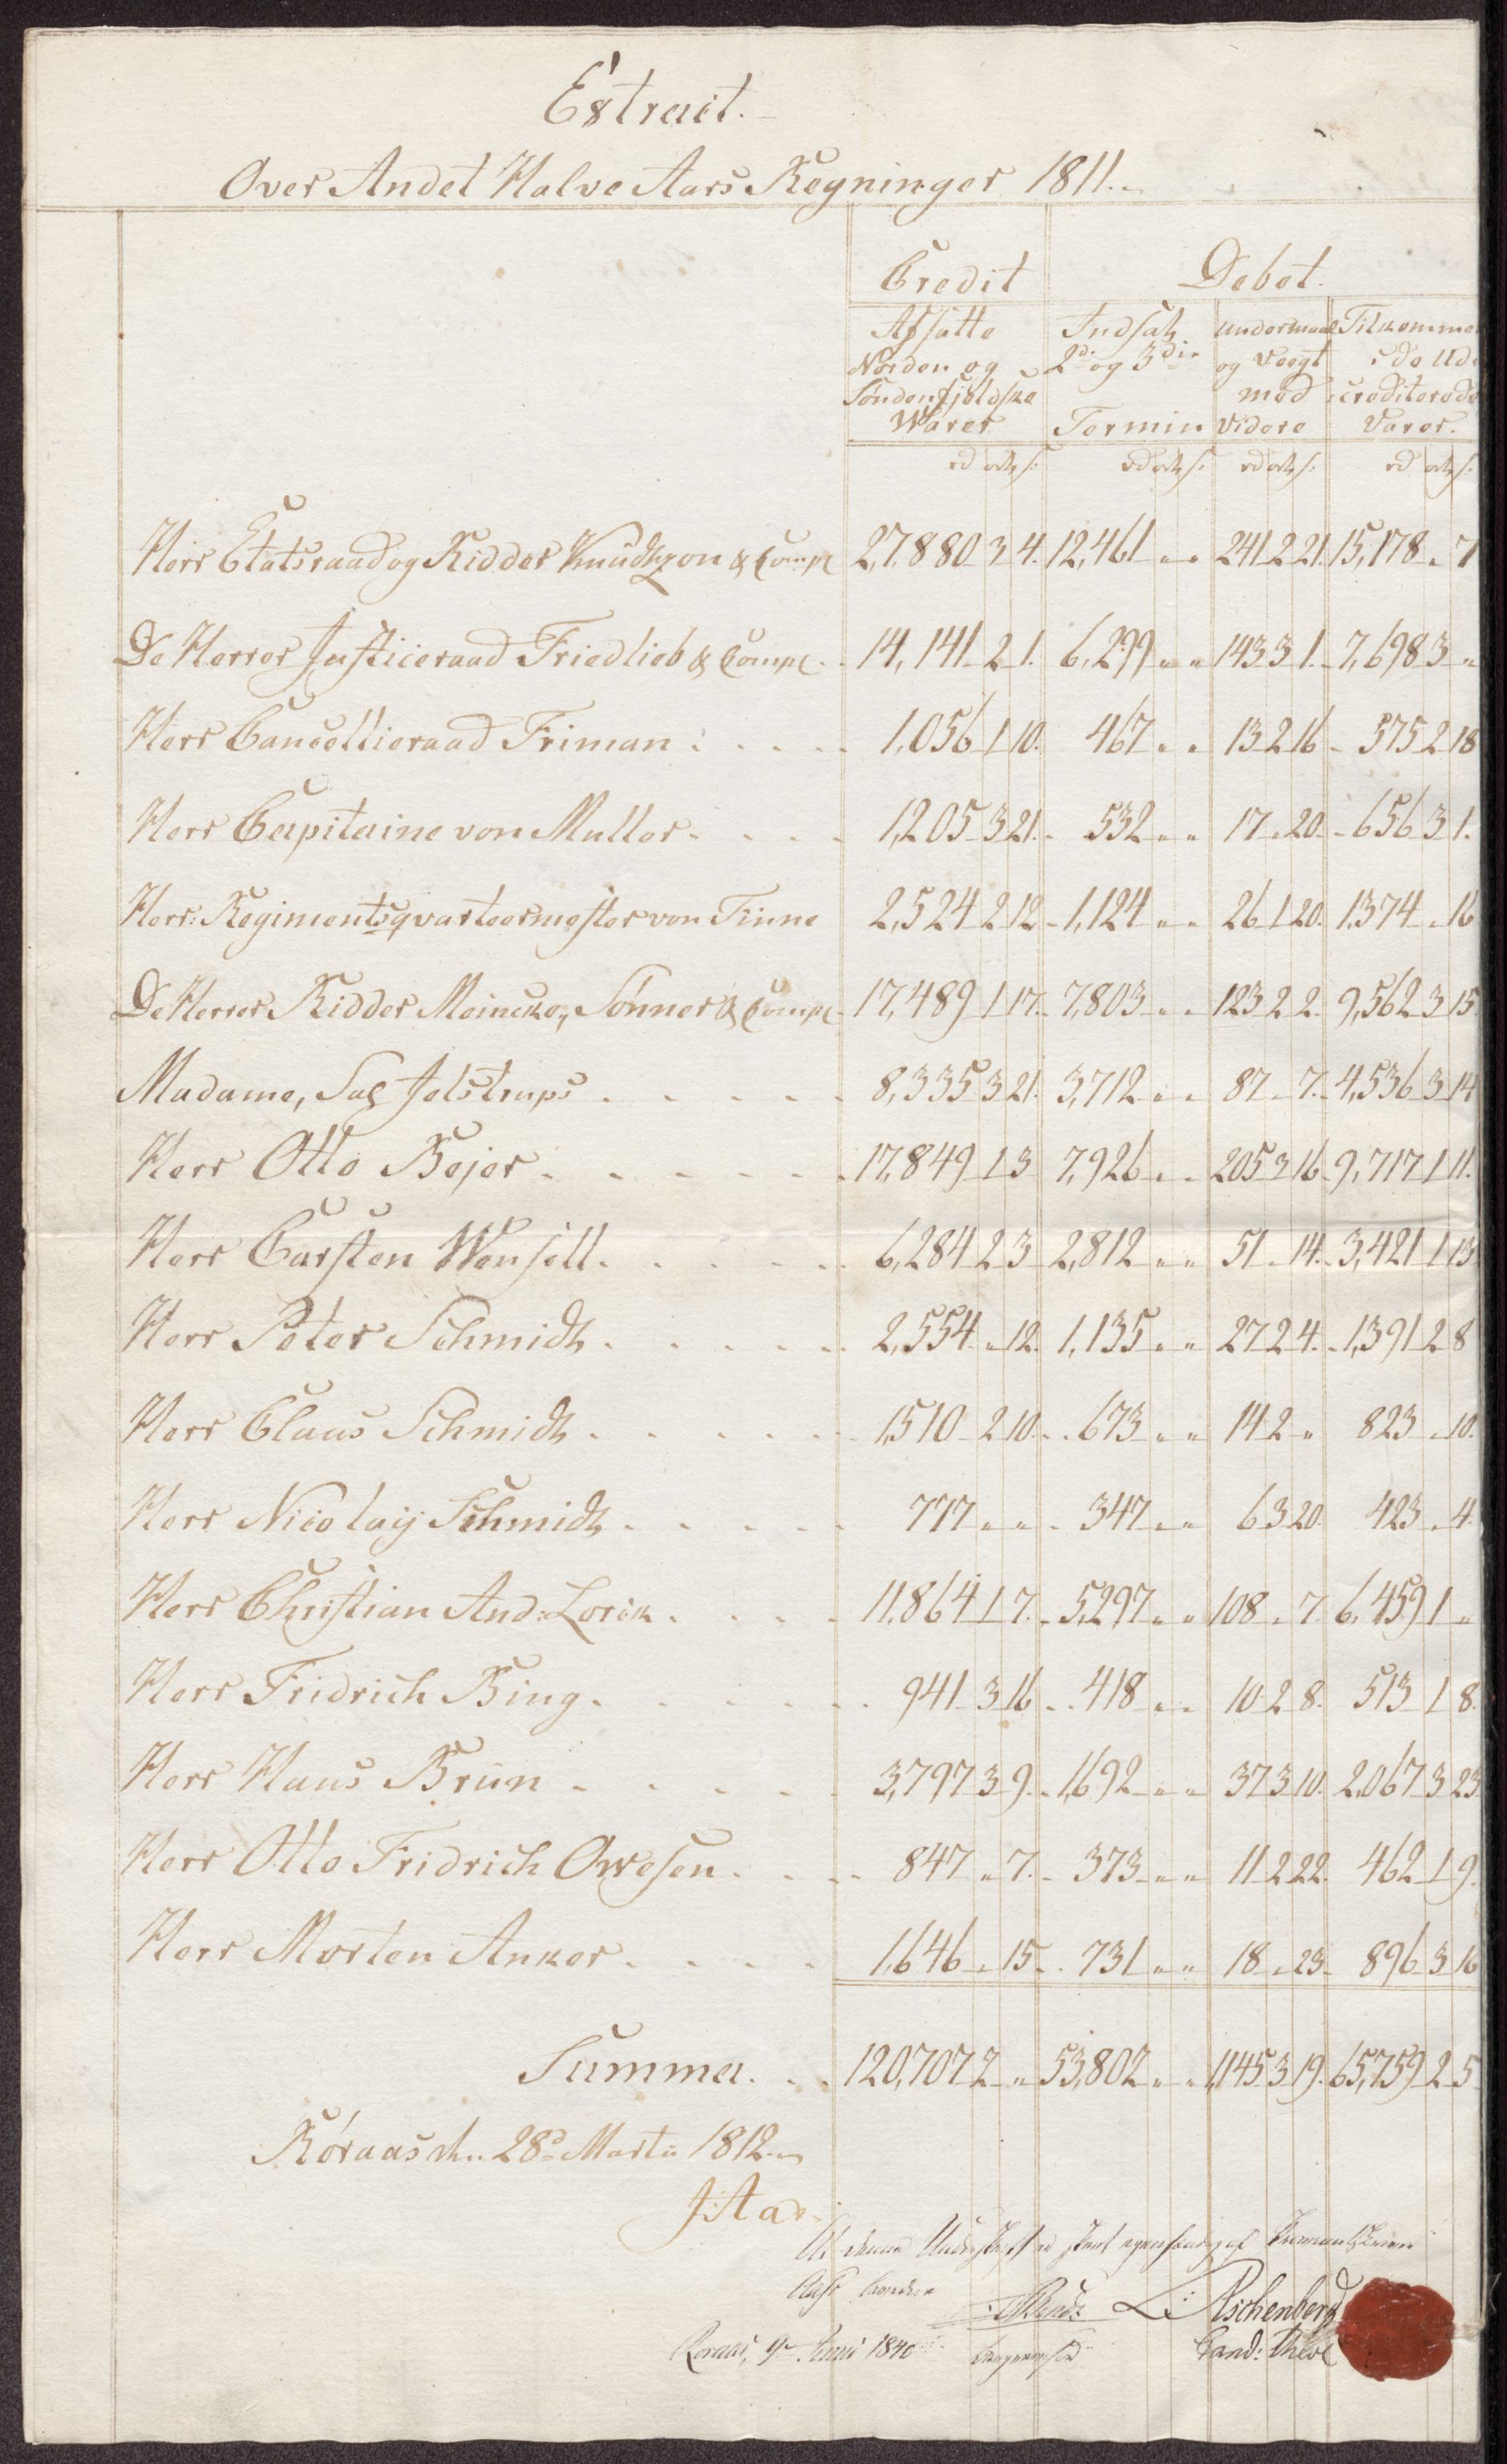 Extract.
Over Andet Halve Aars Regninger 1811.
Credit Debet.
Afsatte Indsatz undermaal Tilkomme
Norden og 2di og 3die og Vægt i de Ud
Søndenfjeldske med crediterede
Warer Termin videre Varer.
rd ort s: rd ort s: rd ort s: rd ort s:
Herr Etatsraad og Ridder Knudtzon & Comp 27,880 3 4. 12,461 " " 241 2 21. 15,178 " 7
De Herrer Justiceraad Friedlieb & Comp. 14,141 2 1. 6,299 " " 143 3 1. 7,698 3 "
Herr Cancellieraad Friman 1,056 1 10. 467 " " 13 2 16 575 2 18
Herr Capitaine von Muller 1,205 3 21. 532 " " 17 " 20. 656 3 1.
Herr: Regimentsqvarteermester von Finne 2,524 2 12 1,124 " " 26 1 20. 1,374 " 16
De Herrer Ridder Meincke, Sønner & Comp 17,489 1 17. 7,803 " " 123 2 2. 9,562 3 15
Madame, Sal Jelstrups 8,335 3 21. 3,712 " " 87 " 7. 4,536 3 14
Herr Otto Bejer 17,849 1 3 7,926 " " 205 3 16 9,717 1 11.
Herr Carsten Wensell 6,284 2 3 2,812 " " 51 " 14. 3,421 1 13
Herr Peter Schmidt 2,554 " 12. 1,135 " " 27 2 4. 1,391 2 8
Herr Claus Schmidt 1,510 2 10. 673 " " 14 2 " 823 " 10.
Herr Nicolaij Schmidt 777 " " 347 " " 6 3 20. 423 " 4.
Herr Christian And: Lorck 11,864 1 7. 5,297 " " 108 " 7. 6,459 1 "
Herr Fridrich Bing 941 3 16 418 " " 10 2 8. 513 1 8.
Herr Hans Brun 3,797 3 9. 1,692 " " 37 3 10. 2,067 3 23
Herr Otto Fridrich Owesen 847 " 7. 373 " " 11 2 22. 462 1 9.
Herr Morten Anker 1,646 " 15 731 " " 18 " 23 896 3 16
Summa 120,707 2 " 53,802 " " 1,145 3 19. 65,759 2 5
Røraas d. 28d Martii 1812.
J: Aas
At denne Underskrift er
L: Aschenberg
Røraas, 9 Juni 1840
Cand: theol